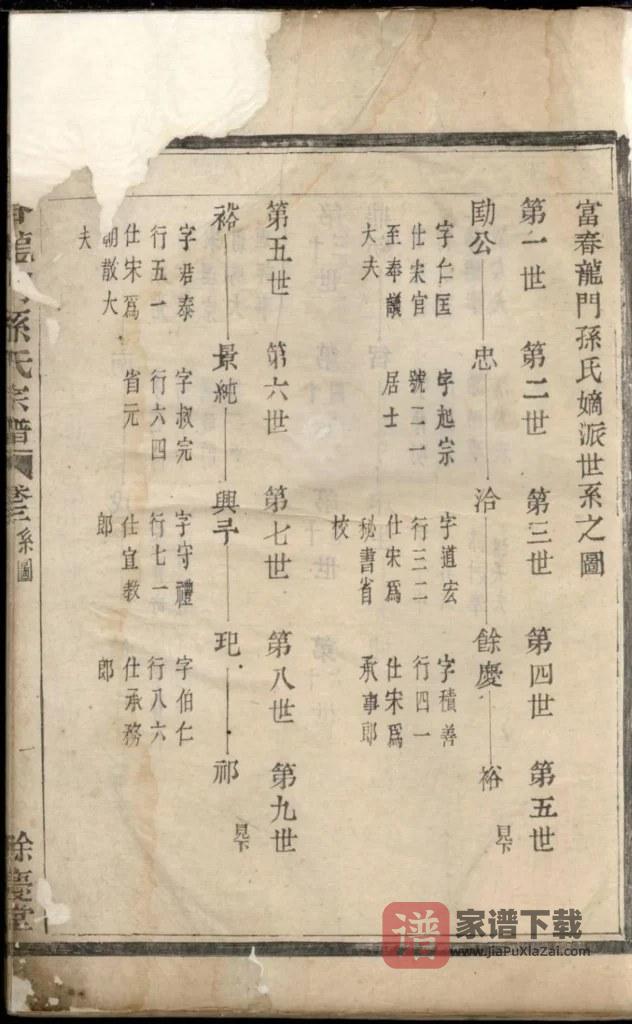 富春龍門孫氏嫡派世系之圖
第一世 第二世 第三世 第四世 第五世
勛公 忠 洽 餘慶 裕 見下
字仁匡
仕宋官
至奉議
大夫
字起宗
號二一
居士
字道宏
行三二
仕宋為
秘書省
校
字積善
行四一
仕宋為
承事郎
第五世 第六世 第七世 第八世 第九世
裕 景純 興 玘 祁 見下
字君泰
行五一
仕宋為
朝散大
夫
字叔完
行六四
省元
字守禮
行七一
仕宣教
郎
字伯仁
行八六
仕承務
郎
龍 孫氏宗譜 卷三 系圖 一 餘慶堂
谱 家谱下载
www.jiaPuXiaZai.com